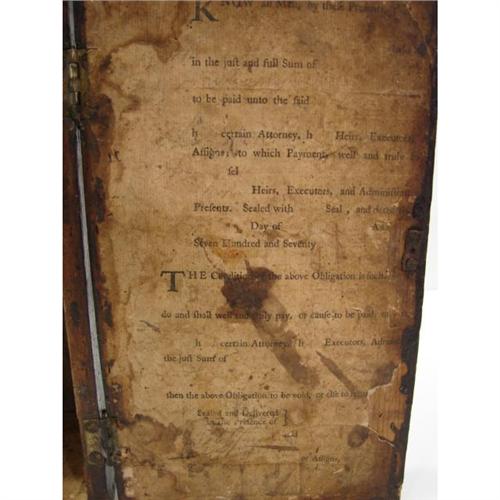 KNOW all ME, by these Presents,
in the just and full Sum of
to be paid unto the said
h certain Attorney, h Heirs, Executors,
Assigns; to which Payment, well and truly to
sel
Heirs, Executors, and Administ
Presents. Sealed with Seal, and
Day of
Seven Hundred and Seventy
THE Condition of the above Obligation is such,
do and shall well and truly pay, or cause to be paid,
h certain Attorney, h Executors, Admin
the just Sum of
then the above Obligation to be void, or else to
Sealed and Delivered
in the Presence of
or Assigns,